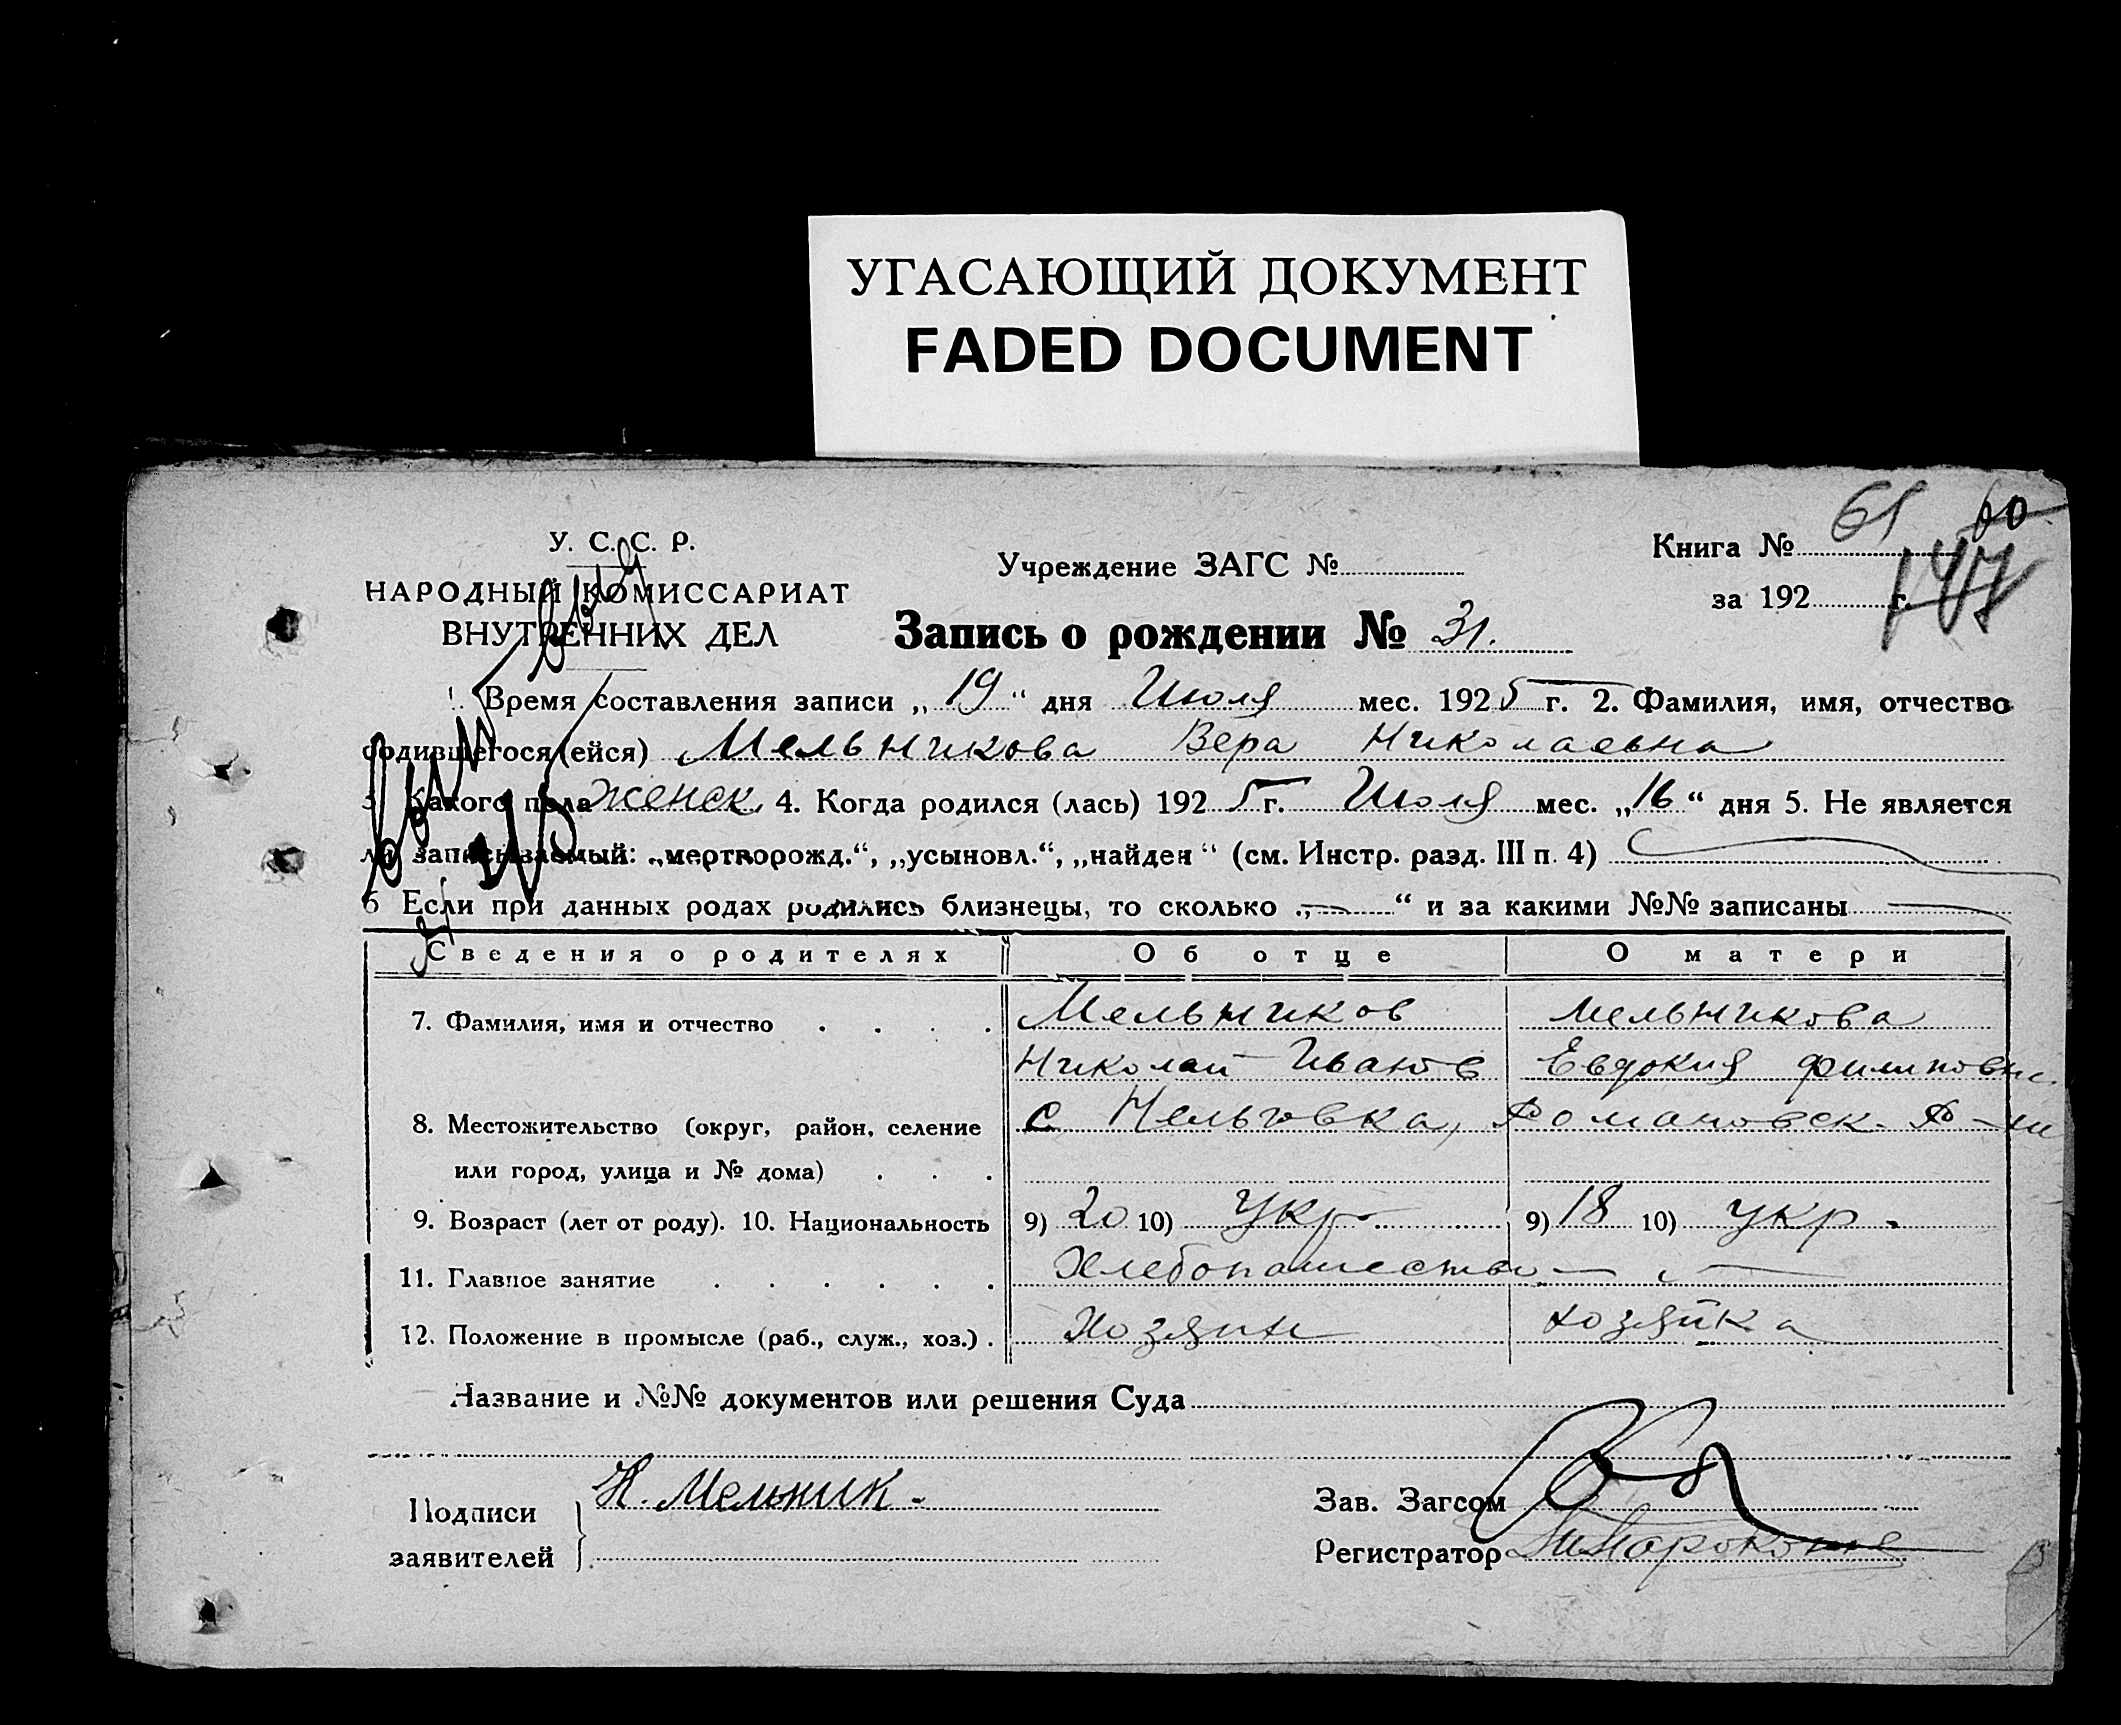 УГАСАЮЩИЙ ДОКУМЕНТ
FADED DOCUMENT
61 60
147
У. С. С. Р.
НАРОДНЫЙ КОМИССАРИАТ
ВНУТРЕННИХ ДЕЛ
Учреждение ЗАГС №
Книга №
за 192 г.
Запись о рождении № 31.
1. Время составления записи „19“ дня Июля мес. 1925 г. 2. Фамилия, имя, отчество
родившегося (ейся) Мельникова Вера Николаевна
3. Какого пола женск. 4. Когда родился (лась) 1925 г. Июля мес. „16“ дня 5. Не является
ли записываемый: „мертворожд.“, „усыновл.“, „найден“ (см. Инстр. разд. III п. 4)
6 Если при данных родах родились близнецы, то сколько „—“ и за какими №№ записаны —
Сведения о родителях Об отце О матери
7. Фамилия, имя и отчество Мельников Мельникова
Николай Иванов Евдокия Филиповн.
8. Местожительство (округ, район, селение с. Нельговка, Романовск. Р-на
или город, улица и № дома)
9. Возраст (лет от роду). 10. Национальность 9) 20 10) Укр. 9) 18 10) укр.
11. Главное занятие Хлебопашество — „ —
12. Положение в промысле (раб., служ., хоз.) Хозяин хозяйка
Название и №№ документов или решения Суда
Подписи
заявителей
Н. Мельник.
Зав. Загсом
Регистратор